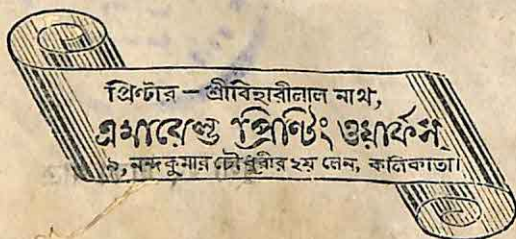 প্রিন্টার – শ্রীবিহারীলাল নাথ,
এমারেল্ড প্রিন্টিং ওয়ার্কস্
৯, নন্দকুমার চৌধুরীর ২য় লেন, কলিকাতা।